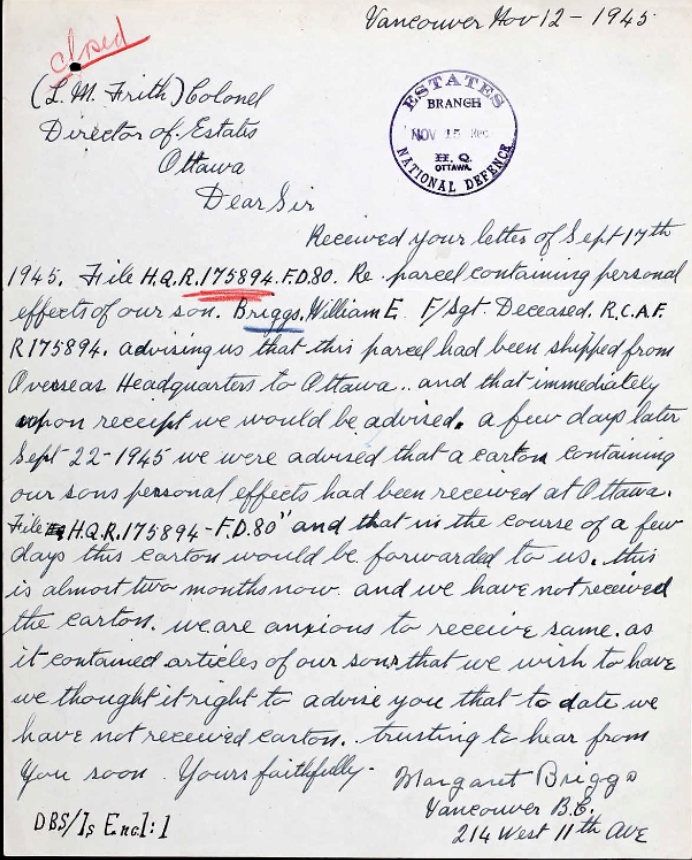 Vancouver Nov 12 - 1945.
closed
(L. M. Frith) Colonel
Director of Estates
Ottawa
Dear Sir
ESTATES
BRANCH
NOV 15 Rec
H. Q.
OTTAWA
NATIONAL DEFENCE
Received your letter of Sept 17th
1945. File H.Q.R.175894.F.D.80. Re parcel containing personal
effects of our son. Briggs. William E F/Sgt. Deceased. R.C.A.F.
R175894. advising us that this parcel had been shipped from
Overseas Headquarters to Ottawa.. and that immediately
upon receipt we would be advised. a few days later
Sept 22-1945 we were advised that a carton containing
our sons personal effects had been received at Ottawa.
File H.Q.R.175894-F.D.80" and that in the course of a few
days this carton would be forwarded to us. this
is almost two months now and we have not received
the carton. we are anxious to receive same. as
it contained articles of our sons that we wish to have
we thought it right to advise you that to date we
have not received carton. trusting to hear from
you soon. Yours faithfully-
Margaret Briggs
Vancouver B.C.
214 West 11th AVE
DBS/Is Encl: 1